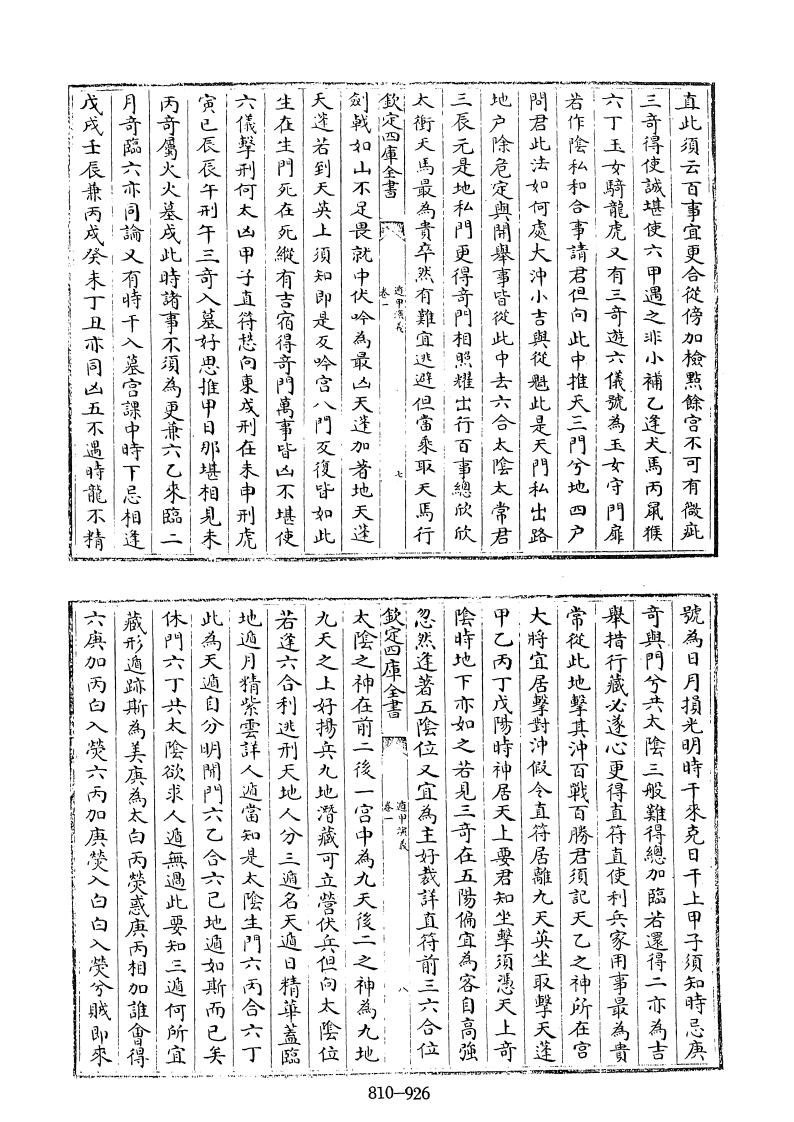 直此須云百事宜更合從傍加檢㸃餘宫不可有微疵
三奇得使誠堪使六甲遇之非小補乙逢犬馬丙鼠猴
六丁玉女騎龍虎又有三奇遊六儀號為玉女守門扉
若作陰私和合事請君但向此中推天三門兮地四户
問君此法如何處大沖小吉與從魁此是天門私出路
地户除危定與開舉事皆從此中去六合太陰太常君
三辰元是地私門更得竒門相照耀出行百事總欣欣
太衝天馬最為貴卒然有難宜逃避但當乘取天馬行
欽定四庫全書
遁甲演義
卷一
七
劍㦸如山不足畏就中伏吟為最凶天蓬加著地天蓬
天蓬若到天英上須知即是反吟宫八門反復皆如此
生在生門死在死縱有吉宿得竒門萬事皆凶不堪使
六儀擊刑何太凶甲子直符愁向東戍刑在未申刑虎
寅巳辰辰午刑午三竒入墓好思推甲日那堪相見未
丙竒屬火火墓戍此時諸事不須為更兼六乙來臨二
月竒臨六亦同論又有時干入墓宫課中時下忌相逢
戊戍壬辰兼丙戍癸未丁丑亦同凶五不遇時龍不精
號為日月損光明時干來克日干上甲子須知時忌庚
竒與門兮共太陰三般難得總加臨若還得二亦為吉
舉措行藏必遂心更得直符直使利兵家用事最為貴
常從此地擊其沖百戰百勝君須記天乙之神所在宫
大將宜居擊對沖假令直符居離九天英坐取擊天蓬
甲乙丙丁戊陽時神居天上要君知坐擊須憑天上竒
陰時地下亦如之若見三竒在五陽偏宜為客自高強
忽然逢著五陰位又宜為主好裁詳直符前三六合位
欽定四庫全書
遁甲演義
卷一
八
太陰之神在前二後一宫中為九天後二之神為九地
九天之上好揚兵九地潛藏可立營伏兵但向太陰位
若逢六合利逃刑天地人分三遁名天遁日精華蓋臨
地遁月精紫雲詳人遁當知是太陰生門六丙合六丁
此為天遁自分明開門六乙合六己地遁如斯而已矣
休門六丁共太陰欲求人遁無過此要知三遁何所宜
藏形遁跡斯為美庚為太白丙熒惑庚丙相加誰會得
六庚加丙白入熒六丙加庚熒入白白入熒兮賊即來
810-926